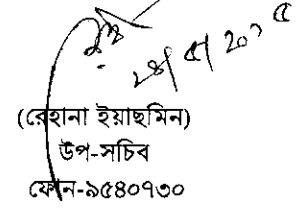 ২৪/৫/২০১৫
(রেহানা ইয়াছমিন)
উপ-সচিব
ফোন-৯৫৪০৭৩০